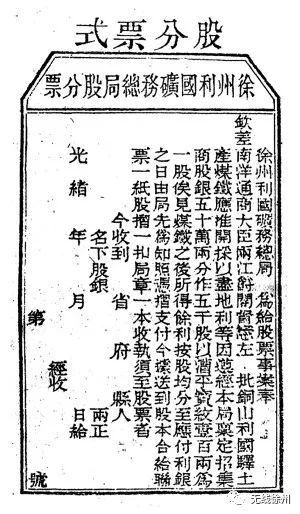 股分票式
徐州利國礦務總局股分票
徐州利國礦務總局 為給股票事案奉
欽差南洋通商大臣兩江爵閣督憲左 批銅山利國驛土
產煤鐵應准開採以盡地利等因遵經本局稟定招集
商股銀五十萬兩分作五千股以漕平寶紋壹百兩為
一股俟見煤鐵之後所得餘利按股均分至應付利銀
之日由局先為知照憑摺支付今據送到股本合給聯
票一紙股摺一扣局章一本收執須至股票者
今收到 省 府 縣人
名下股銀 兩正
光緒 年 月 日給
經收
第 號
无线徐州